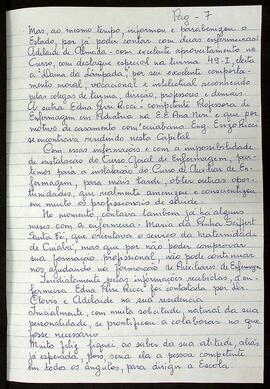 Pag - 7
Mas, ao mesmo tempo, informou e parabenizou o
Estado, por já poder contar com duas enfermeiras:
Adelaide de Almeida - com excelente aproveitamento no
Curso, com destaque especial na turma 49-I, eleita
a "Dama da Lâmpada", por seu excelente comporta-
mento moral, vocacional e intelectual reconhecido
pelas colegas de turma, direção, professores e demais.
A outra Edna Perri Ricci - competente Professora de
Enfermagem em Pediatria na E.E. Ana Neri e que por
motivo de casamento com cuiabano Eng. Enzo Ricci
se encontrava residindo nesta Capital.
Com essas informações e com a impossibilidade
de instalação do Curso Geral de Enfermagem, par-
timos para a instalação do Curso de Auxiliar de En-
fermagem, para mais tarde, obter outras opor-
tunidades, que realmente aconteceu e conscientizou
em muito os profissionais de saúde.
No momento, contava também já há alguns
meses com a enfermeira - Maria da Penha
Santa Fé, que orientava o serviço da Maternidade
de Cuiabá, mas que por não poder comprovar
sua formação profissional, não pôde continuar
nos ajudando na formação de Auxiliares de Enfermagem
Imediatamente pelas informações recebidas, a en-
fermeira Edna Perri Ricci foi contatada por Dr.
Clovis e Adelaide na sua residência
Inicialmente, com muita solicitude, natural da sua
personalidade, se prontificou a colaborar no que
fosse necessário
Muito feliz fiquei ao saber da sua atitude, aliás
já esperada, pois, seria ela a pessoa competente
em todos os ângulos, para dirigir a Escola.